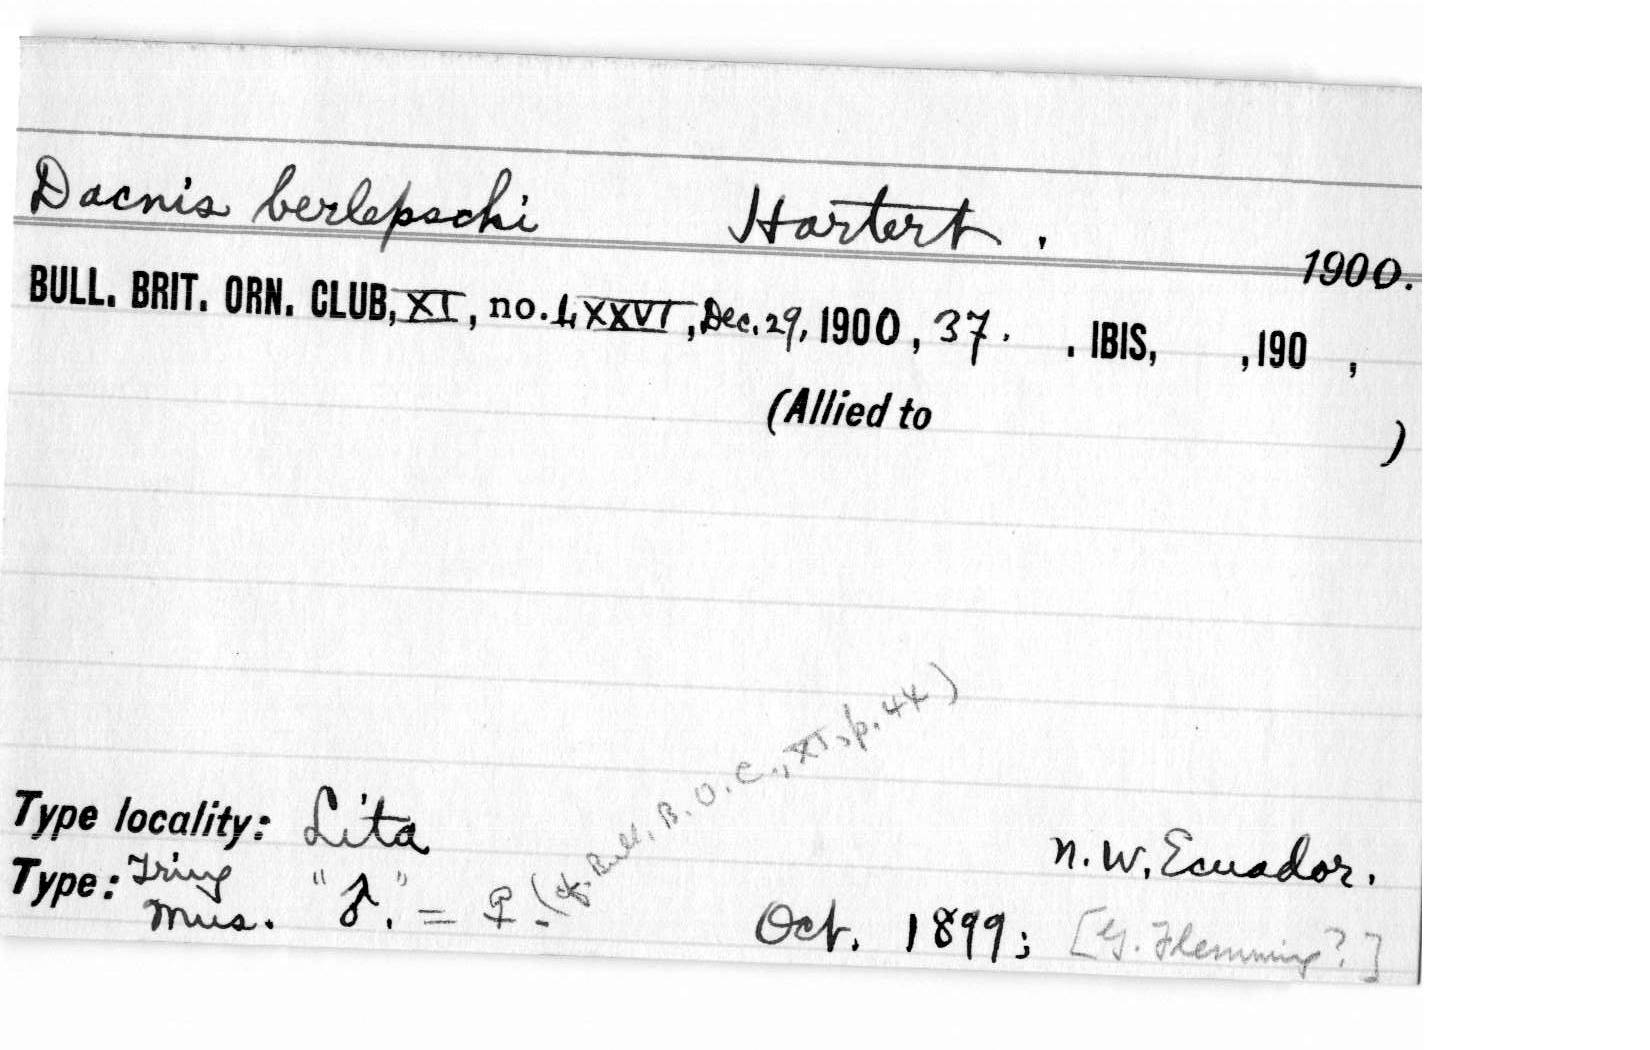 Dacnis berlepschi Hartert.
1900.
BULL. BRIT. ORN. CLUB, XI, no. LXXVI, Dec. 29, 1900, 37. . IBIS, ,190 ,
(Allied to )
Type locality: Lita N.W. Ecuador.
Type: Tring Mus. "♂." = ♀ - (cf. Bull. B. O. C., XI, p. 44) Oct. 1899; [G. Flemming?]